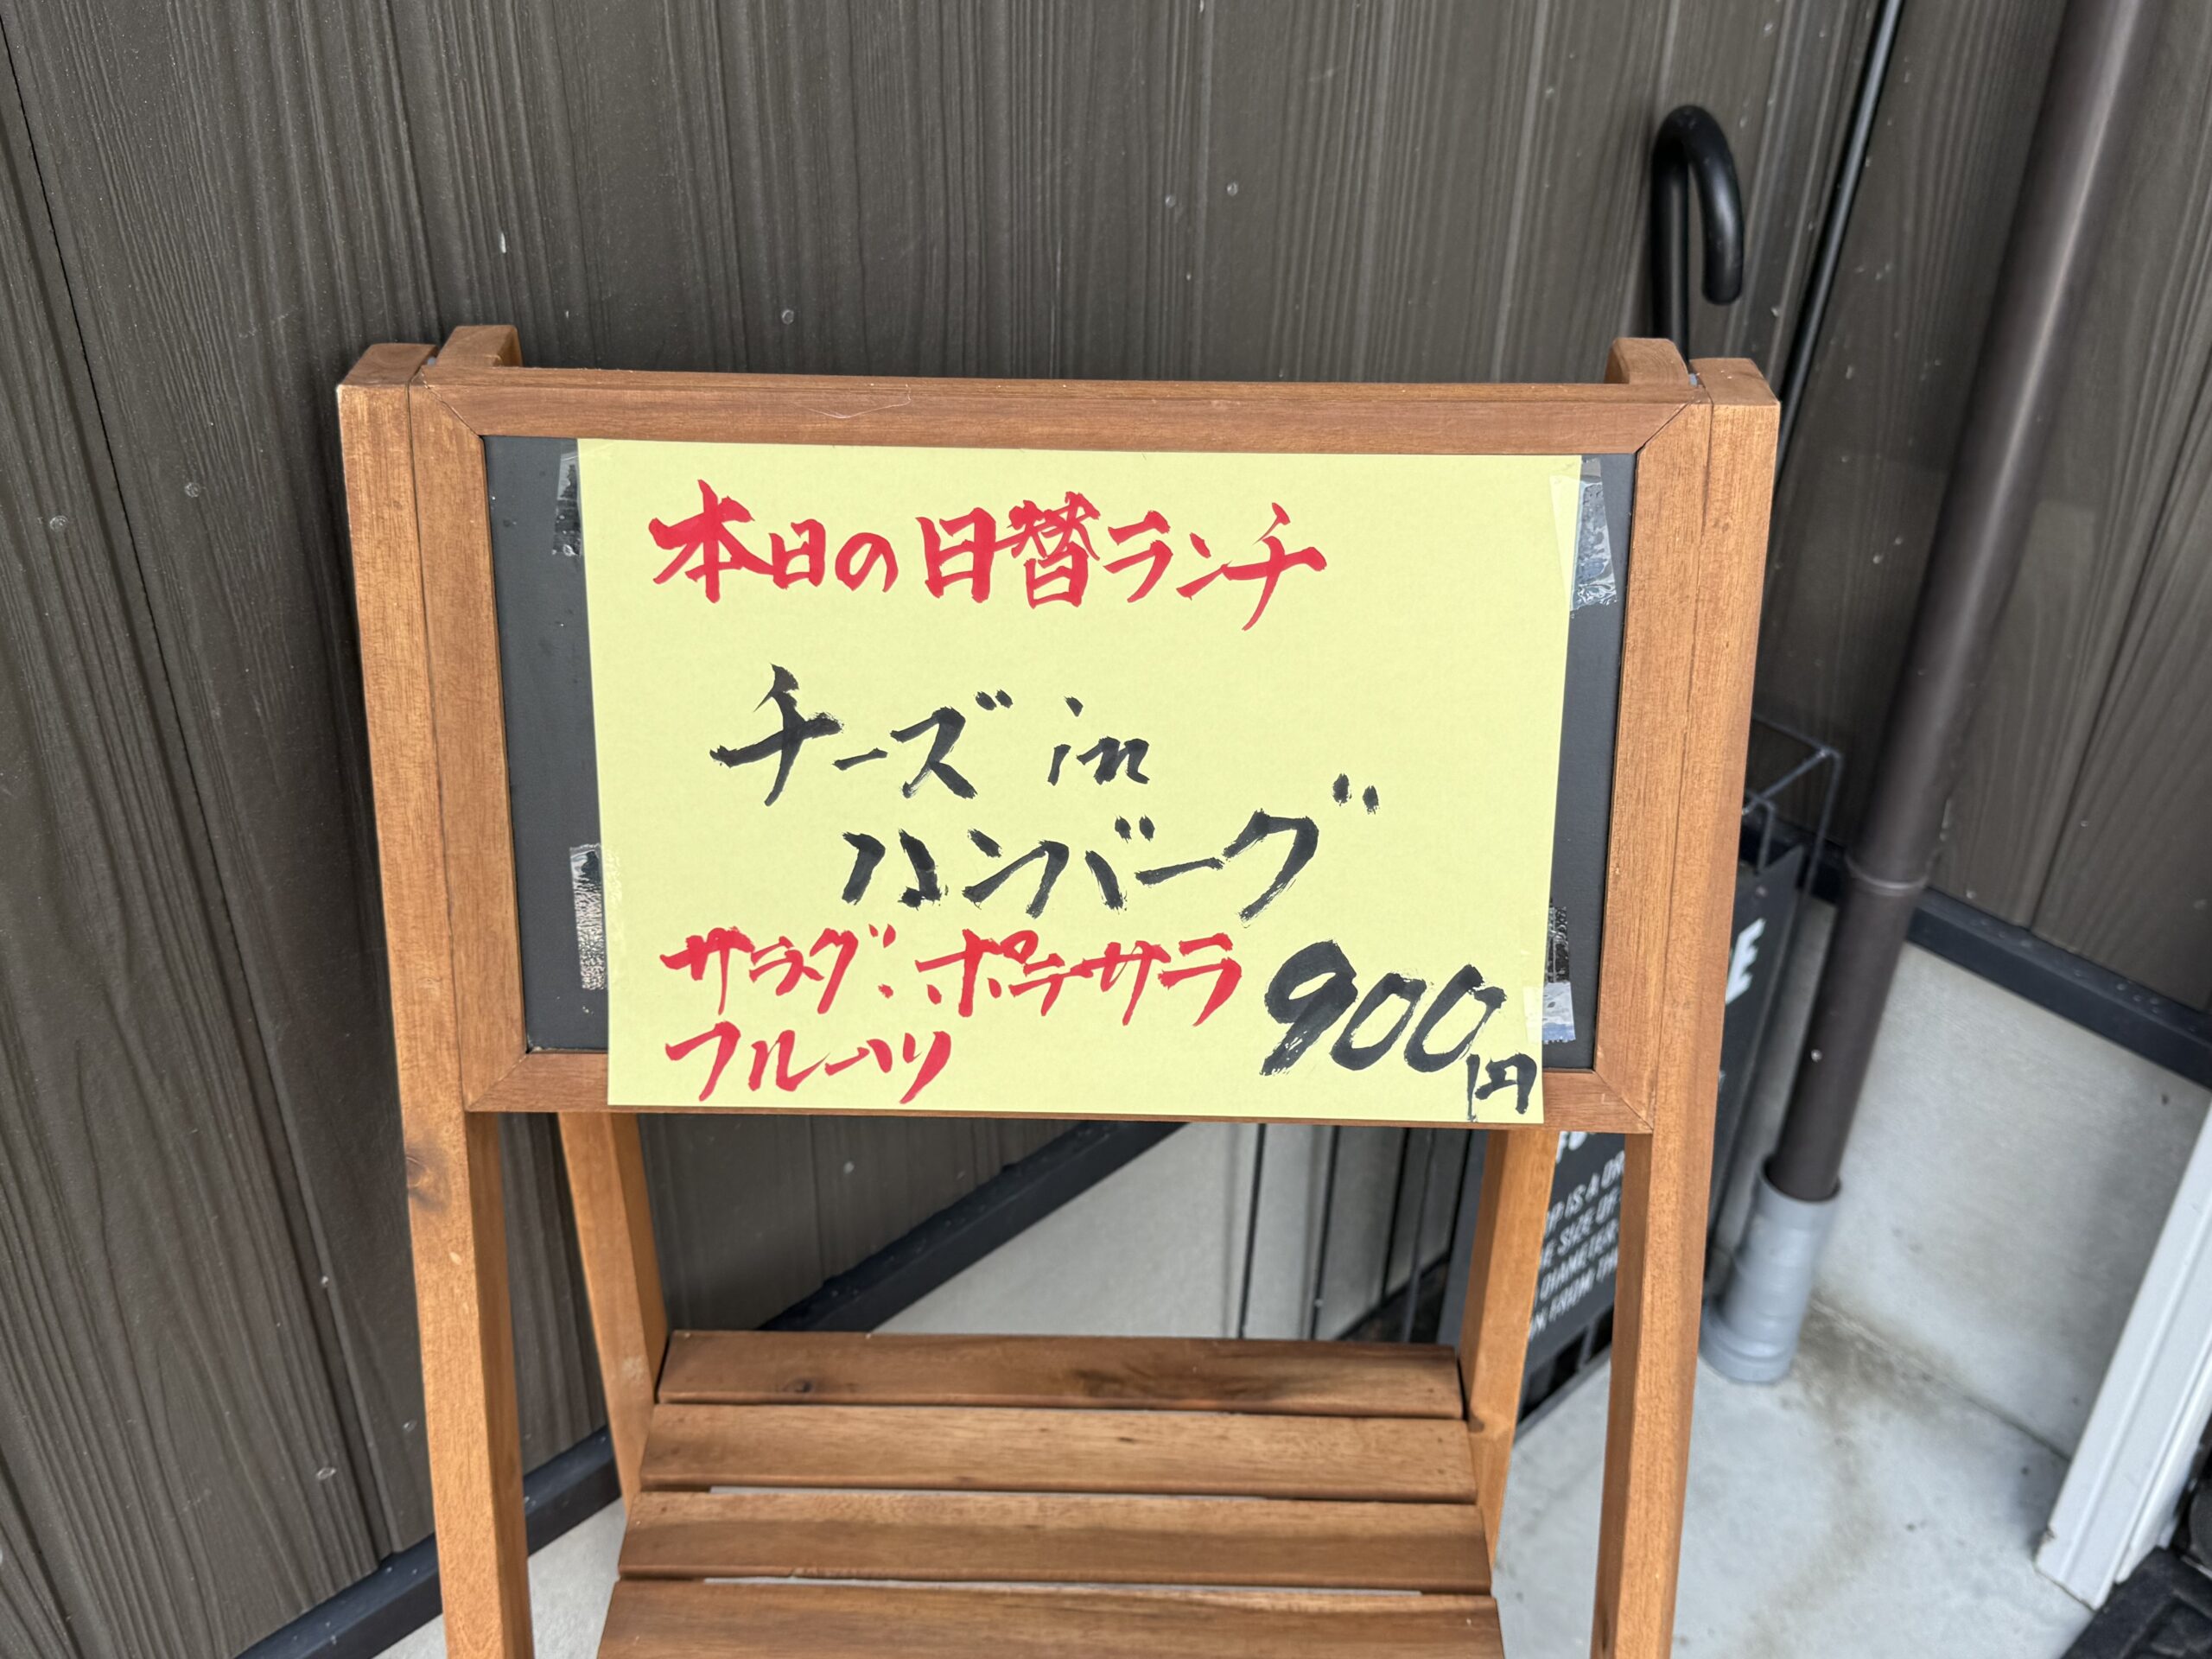 本日の日替ランチ
チーズ in
ハンバーグ
サラダ、ポテサラ
フルーツ
900円
E
IS A
SIZE OF
FROM